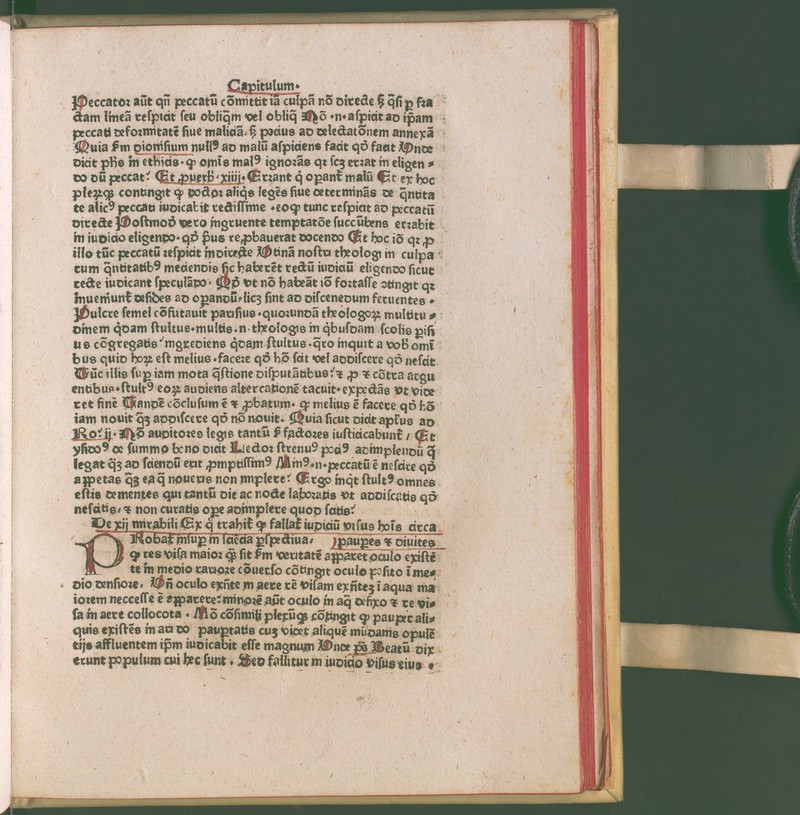 Capitulum.
Peccator aūt qn̄ peccatū cōmittit iā culpā nō directe ſꝫ q̄ſi ꝑ fra
ctam lineā reſpicit ſeu obliqm̄ vel obliq̄ Nō .n. aſpicit ad ip̄am
peccati deformitatē ſiue maliciā. ſꝫ pocius ad delectatōnem annexā
Quia ẜm dioniſium nullꝰ ad malū aſpiciens facit qd̓ facit Unde
dicit ph̄s in ethicis. ꝙ omīs malꝰ ignorās qꝛ ſcꝫ errat in eligen⸗
do dū peccat. Et ꝓuerb̓. xiiij. Errant q̄ operant̄ malū Et ex hoc
pleꝝqꝫ contingit ꝙ doctor aliq̄s legēs ſiue determinās de q̄ntita
te alicꝰ peccati iudicabit rectiſſime .eoꝙ tunc reſpicit ad peccatū
directe Poſtmod̓ vero ingruente temptatōe ſuccūbens errabit
in iudicio eligendo. qd̓ pͥus reꝓbauerat docendo Et hoc iō qꝛ ꝓ
illo tūc peccatū reſpicit indirecte Utinā noſtri theologi in culpa
rum q̄ntitatibꝰ meciendis ſic haberēt rectū iudiciū eligendo ſicut
recte iudicant ſpeculādo. Qd̓ vt nō habeāt iō fortaſſe ↄtingit qꝛ
inueniunt̄ deſides ad operandū. licꝫ ſint ad diſcenedum feruentes.
Pulcre ſemel cōfutauit pariſius .quorundā theologoꝝ multitu⸗
dinem q̇dam ſtultus. multis .n. theologis in q̇buſdam ſcolis pͥſi
us cōgregatis. ingrediens q̇dam ſtultus .q̄ro inquit a vob̓ omī
bus quid hoꝝ eſt melius. facere qd̓ hō ſcit vel addiſcere qd̓ neſcit
Tūc illis ſuꝑ iam mota q̄ſtione diſputātibus. ⁊ ꝓ ⁊ cōtra argu
entibus. ſtultꝰ eoꝝ audiens altercationē tacuit. expectās vt vide
ret finē Tandē cōcluſum ē ⁊ ꝓbatum. ꝙ melius ē facere qd̓ hō
iam nouit q̄ꝫ addiſcere qd̓ nō nouit. Quia ſicut dicit apl̓us ad
Ro. ij. Nō auditores legis tantū ſꝫ factores iuſticicabunt̄, Et
yſidoꝰ de ſummo bono dicit Lector ſtrenuꝰ pociꝰ adimplendū q̄
legat q̄ꝫ ad ſciendū erit ꝓmptiſſimꝰ Minꝰ .n. peccatū ē neſcire qd̓
appetas q̄ꝫ ea q̄ noueris non implere. Ergo inq̇t ſtultꝰ omnes
eſtis dementes qui tantū die ac nocte laboratis vt addiſcatis qd̓
neſcitis. ⁊ non curatis oꝑe adimplere quod ſcitis.
De xij mirabili Ex q̄ trahit̄ ꝙ fallat̄ iudiciū viſus hoīs circa
PRobat̄ inſuꝑ in ſciēcia ꝑſpectiua. pauꝑes ⁊ diuites
ꝙ res viſa maior q̄ꝫ ſit ẜm veritatē apparet oculo exiſtē
te in medio rariore cōuerſo cōtingit oculo poſito ī me⸗
dio denſiore. Un̄ oculo exn̄te in aere rē viſam exn̄teꝫ ī aqua ma
iorem necceſſe ē apparere. minorē aūt oculo in aq̄ defixo ⁊ re vi⸗
ſa in aere collocota. Mō cōſimili pleꝝqꝫ cōtingit ꝙ pauper ali⸗
quis exiſtēs in au do pauptatis cuꝫ videt aliquē mūdanis opulē
tijs affluentem ip̄m iudicabit eſſe magnum Unde pͦs Beatū dix
erunt populum cui hec ſunt. Sed fallitur in iudicio viſus eius.